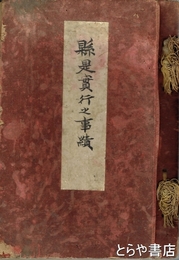 縣是実行之事蹟
とらや書店